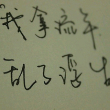 “我拿流年
乱了浮生